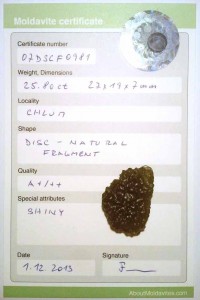 Moldavite certificate
Certificate number
07DSCF0981
Weight, Dimensions
25.80ct 22x19x7mm
Locality
CHLUM
Shape
DISC - NATURAL
FRAGMENT
Quality
A+/++
Special attributes
SHINY
Date
Signature
1.12.2013
AboutMoldavites.com